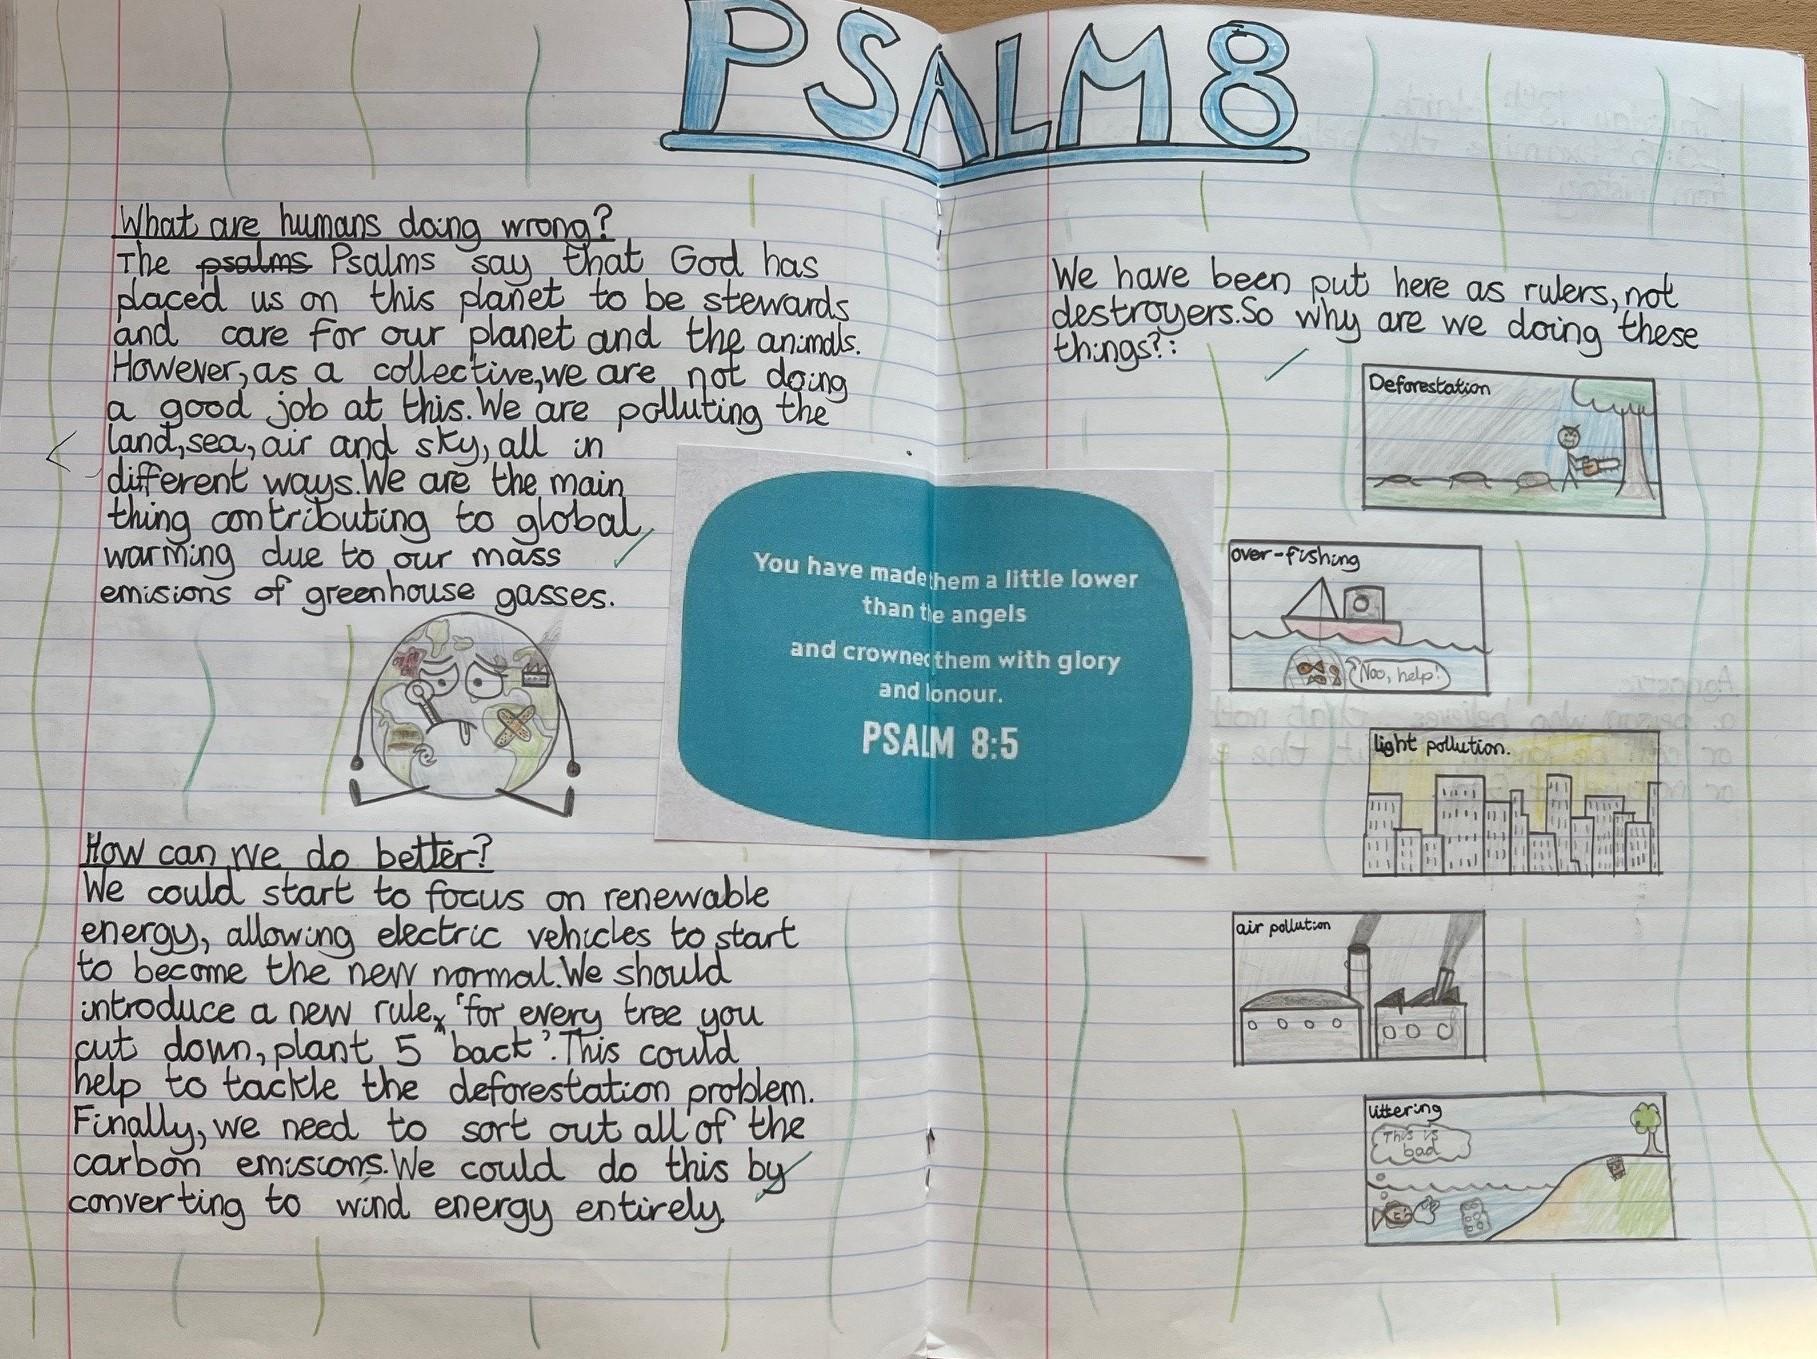 PSALM 8
What are humans doing wrong?
The psalms Psalms say that God has
placed us on this planet to be stewards
and care for our planet and the animals.
However, as a collective, we are not doing
a good job at this. We are polluting the
land, sea, air and sky, all in
different ways. We are the main
thing contributing to global
warming due to our mass
emisions of greenhouse gasses.
How can we do better?
We could start to focus on renewable
energy, allowing electric vehicles to start
to become the new normal. We should
introduce a new rule, 'for every tree you
cut down, plant 5 back'. This could
help to tackle the deforestation problem.
Finally, we need to sort out all of the
carbon emisions. We could do this by
converting to wind energy entirely.
You have made them a little lower
than the angels
and crowned them with glory
and honour.
PSALM 8:5
We have been put here as rulers, not
destroyers. So why are we doing these
things?:
Deforestation
over-fishing
Noo, help!
light pollution.
air pollution
littering
This is
bad